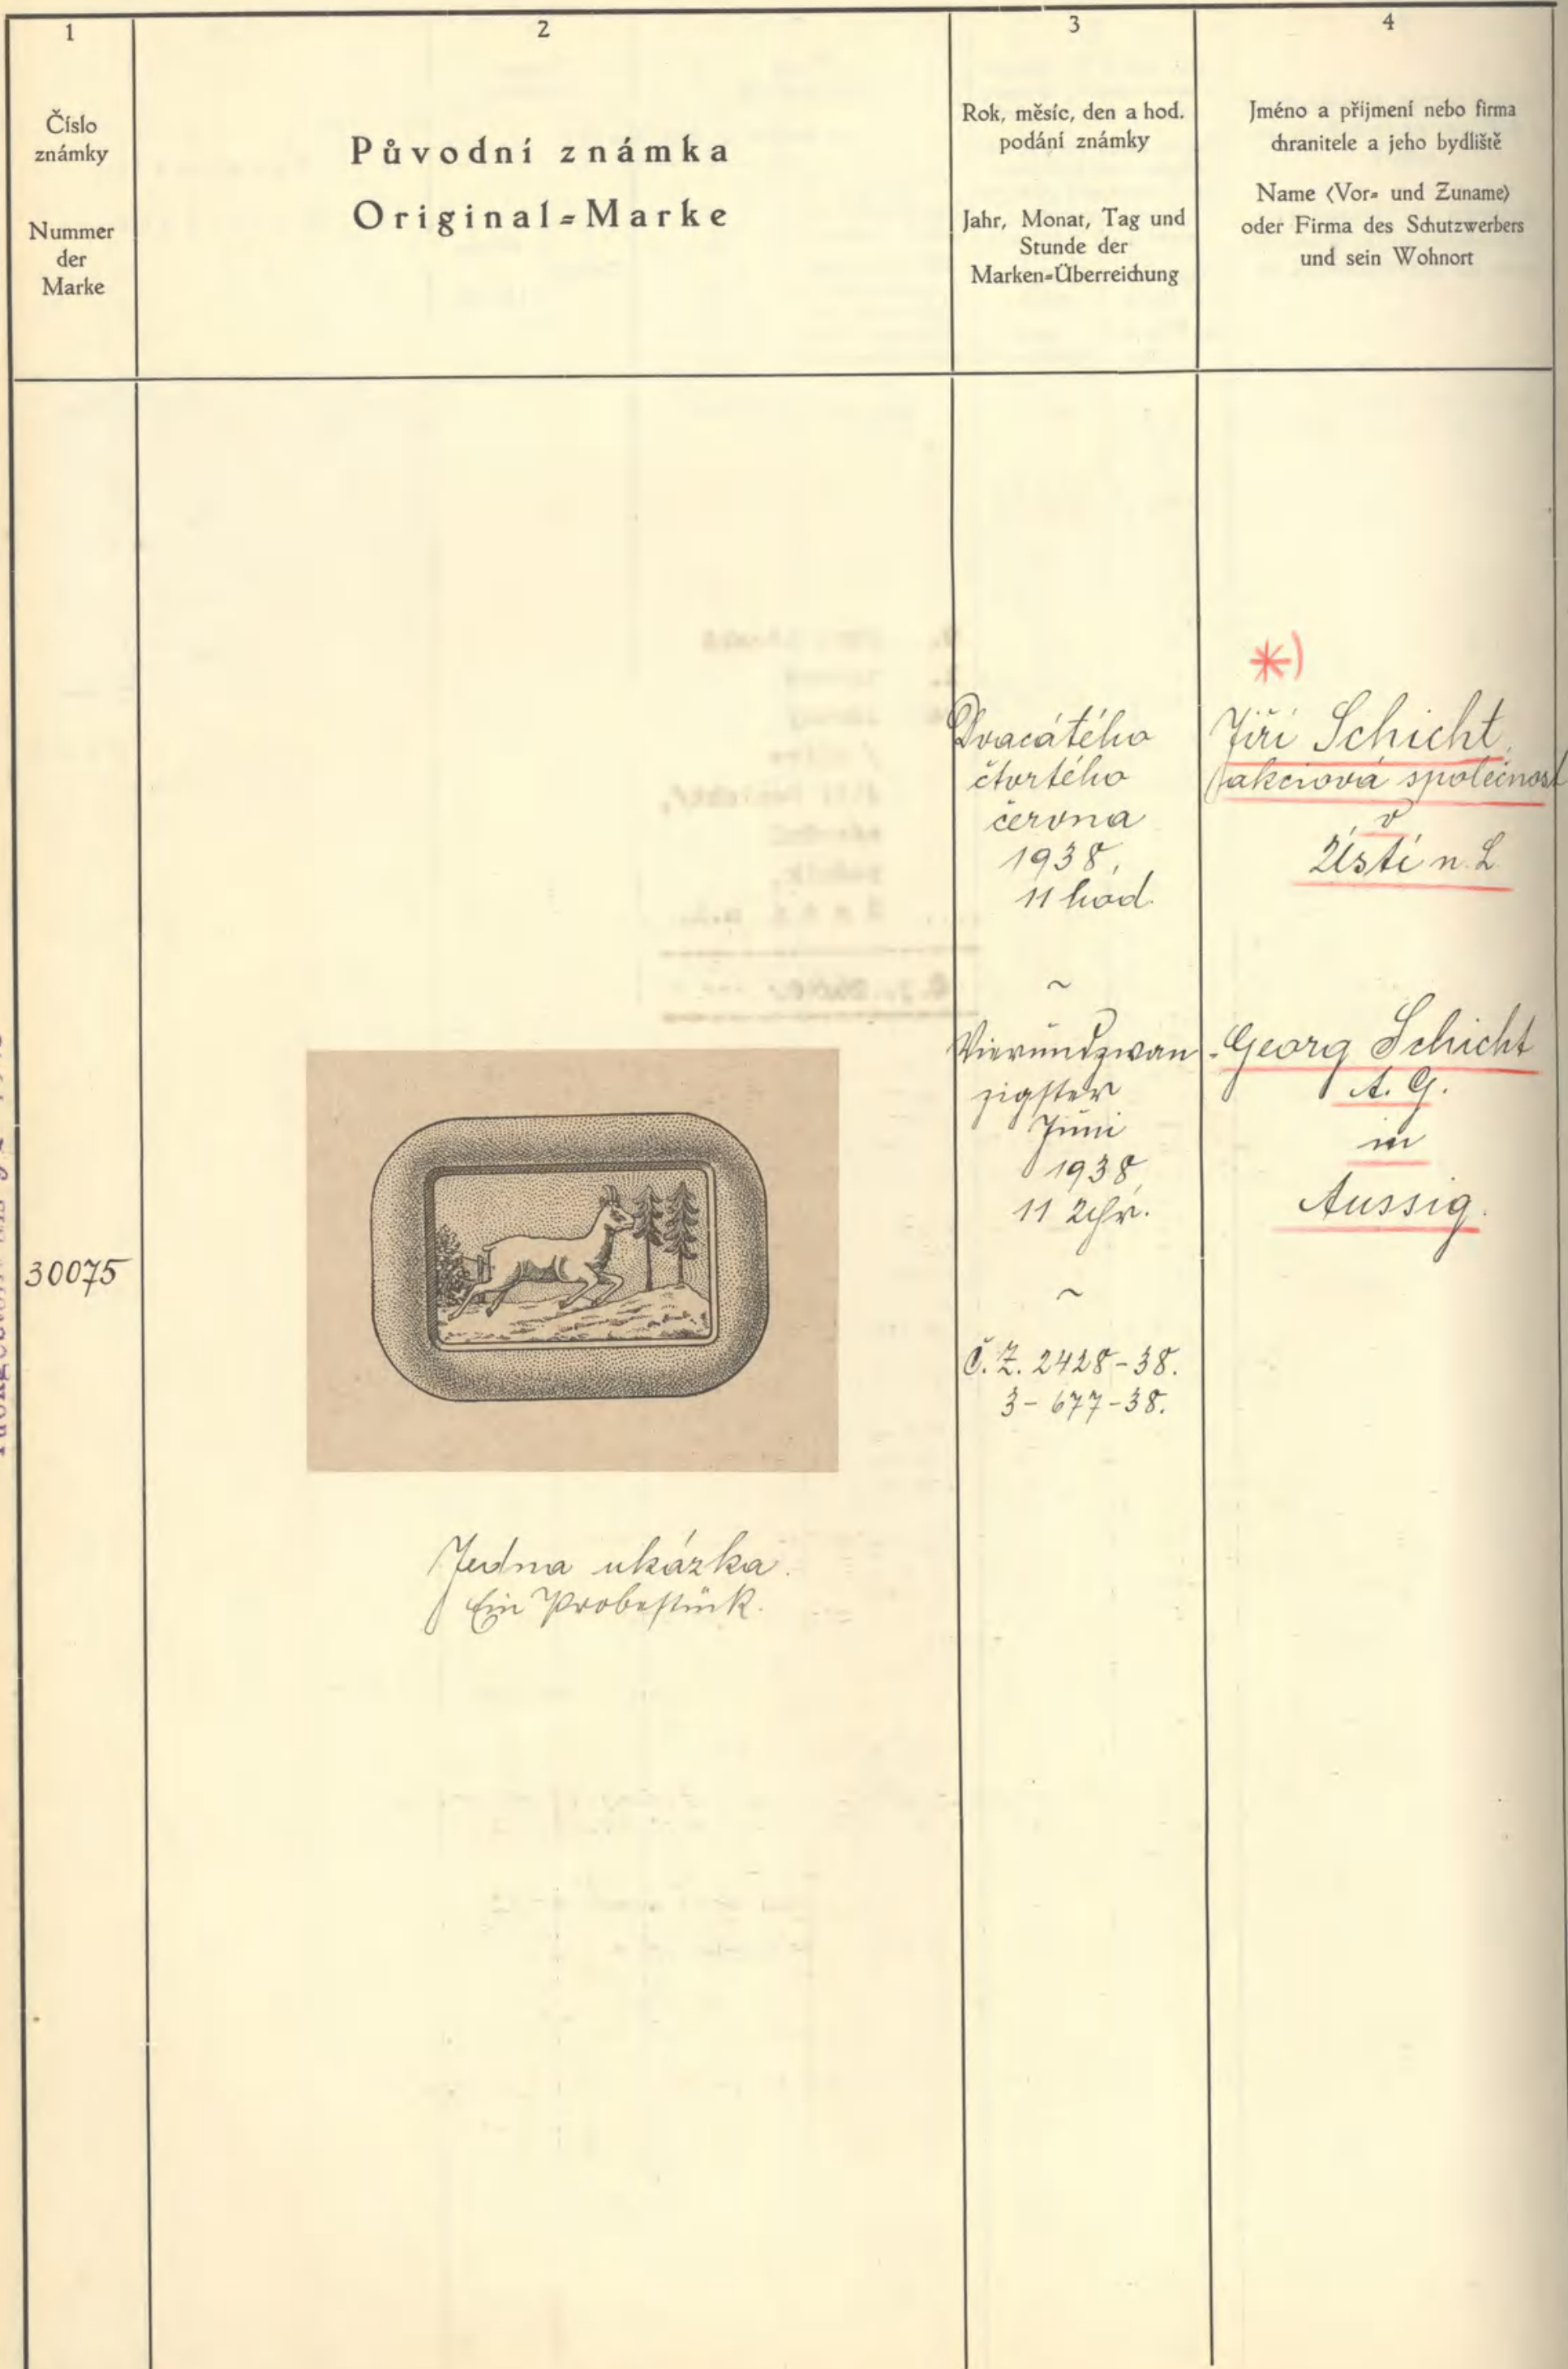 1
Číslo
známky
Nummer
der
Marke
2
Původní známka
Original=Marke
3
Rok, měsíc, den a hod.
podání známky
Jahr, Monat, Tag und
Stunde der
Marken=Überreichung
4
Jméno a příjmení nebo firma
chranitele a jeho bydliště
Name (Vor= und Zuname)
oder Firma des Schutzwerbers
und sein Wohnort
30075
Jedna ukázka.
Ein Probestück.
Dvacátého
čtvrtého
června
1938,
11 hod.
~
Vierundzwan-
zigster
Juni
1938,
11 Uhr.
~
Č. Z. 2428-38.
3-677-38.
*)
Jiří Schicht,
akciová společnost
v
Ústí n. L.
Georg Schicht
A. G.
in
Aussig.